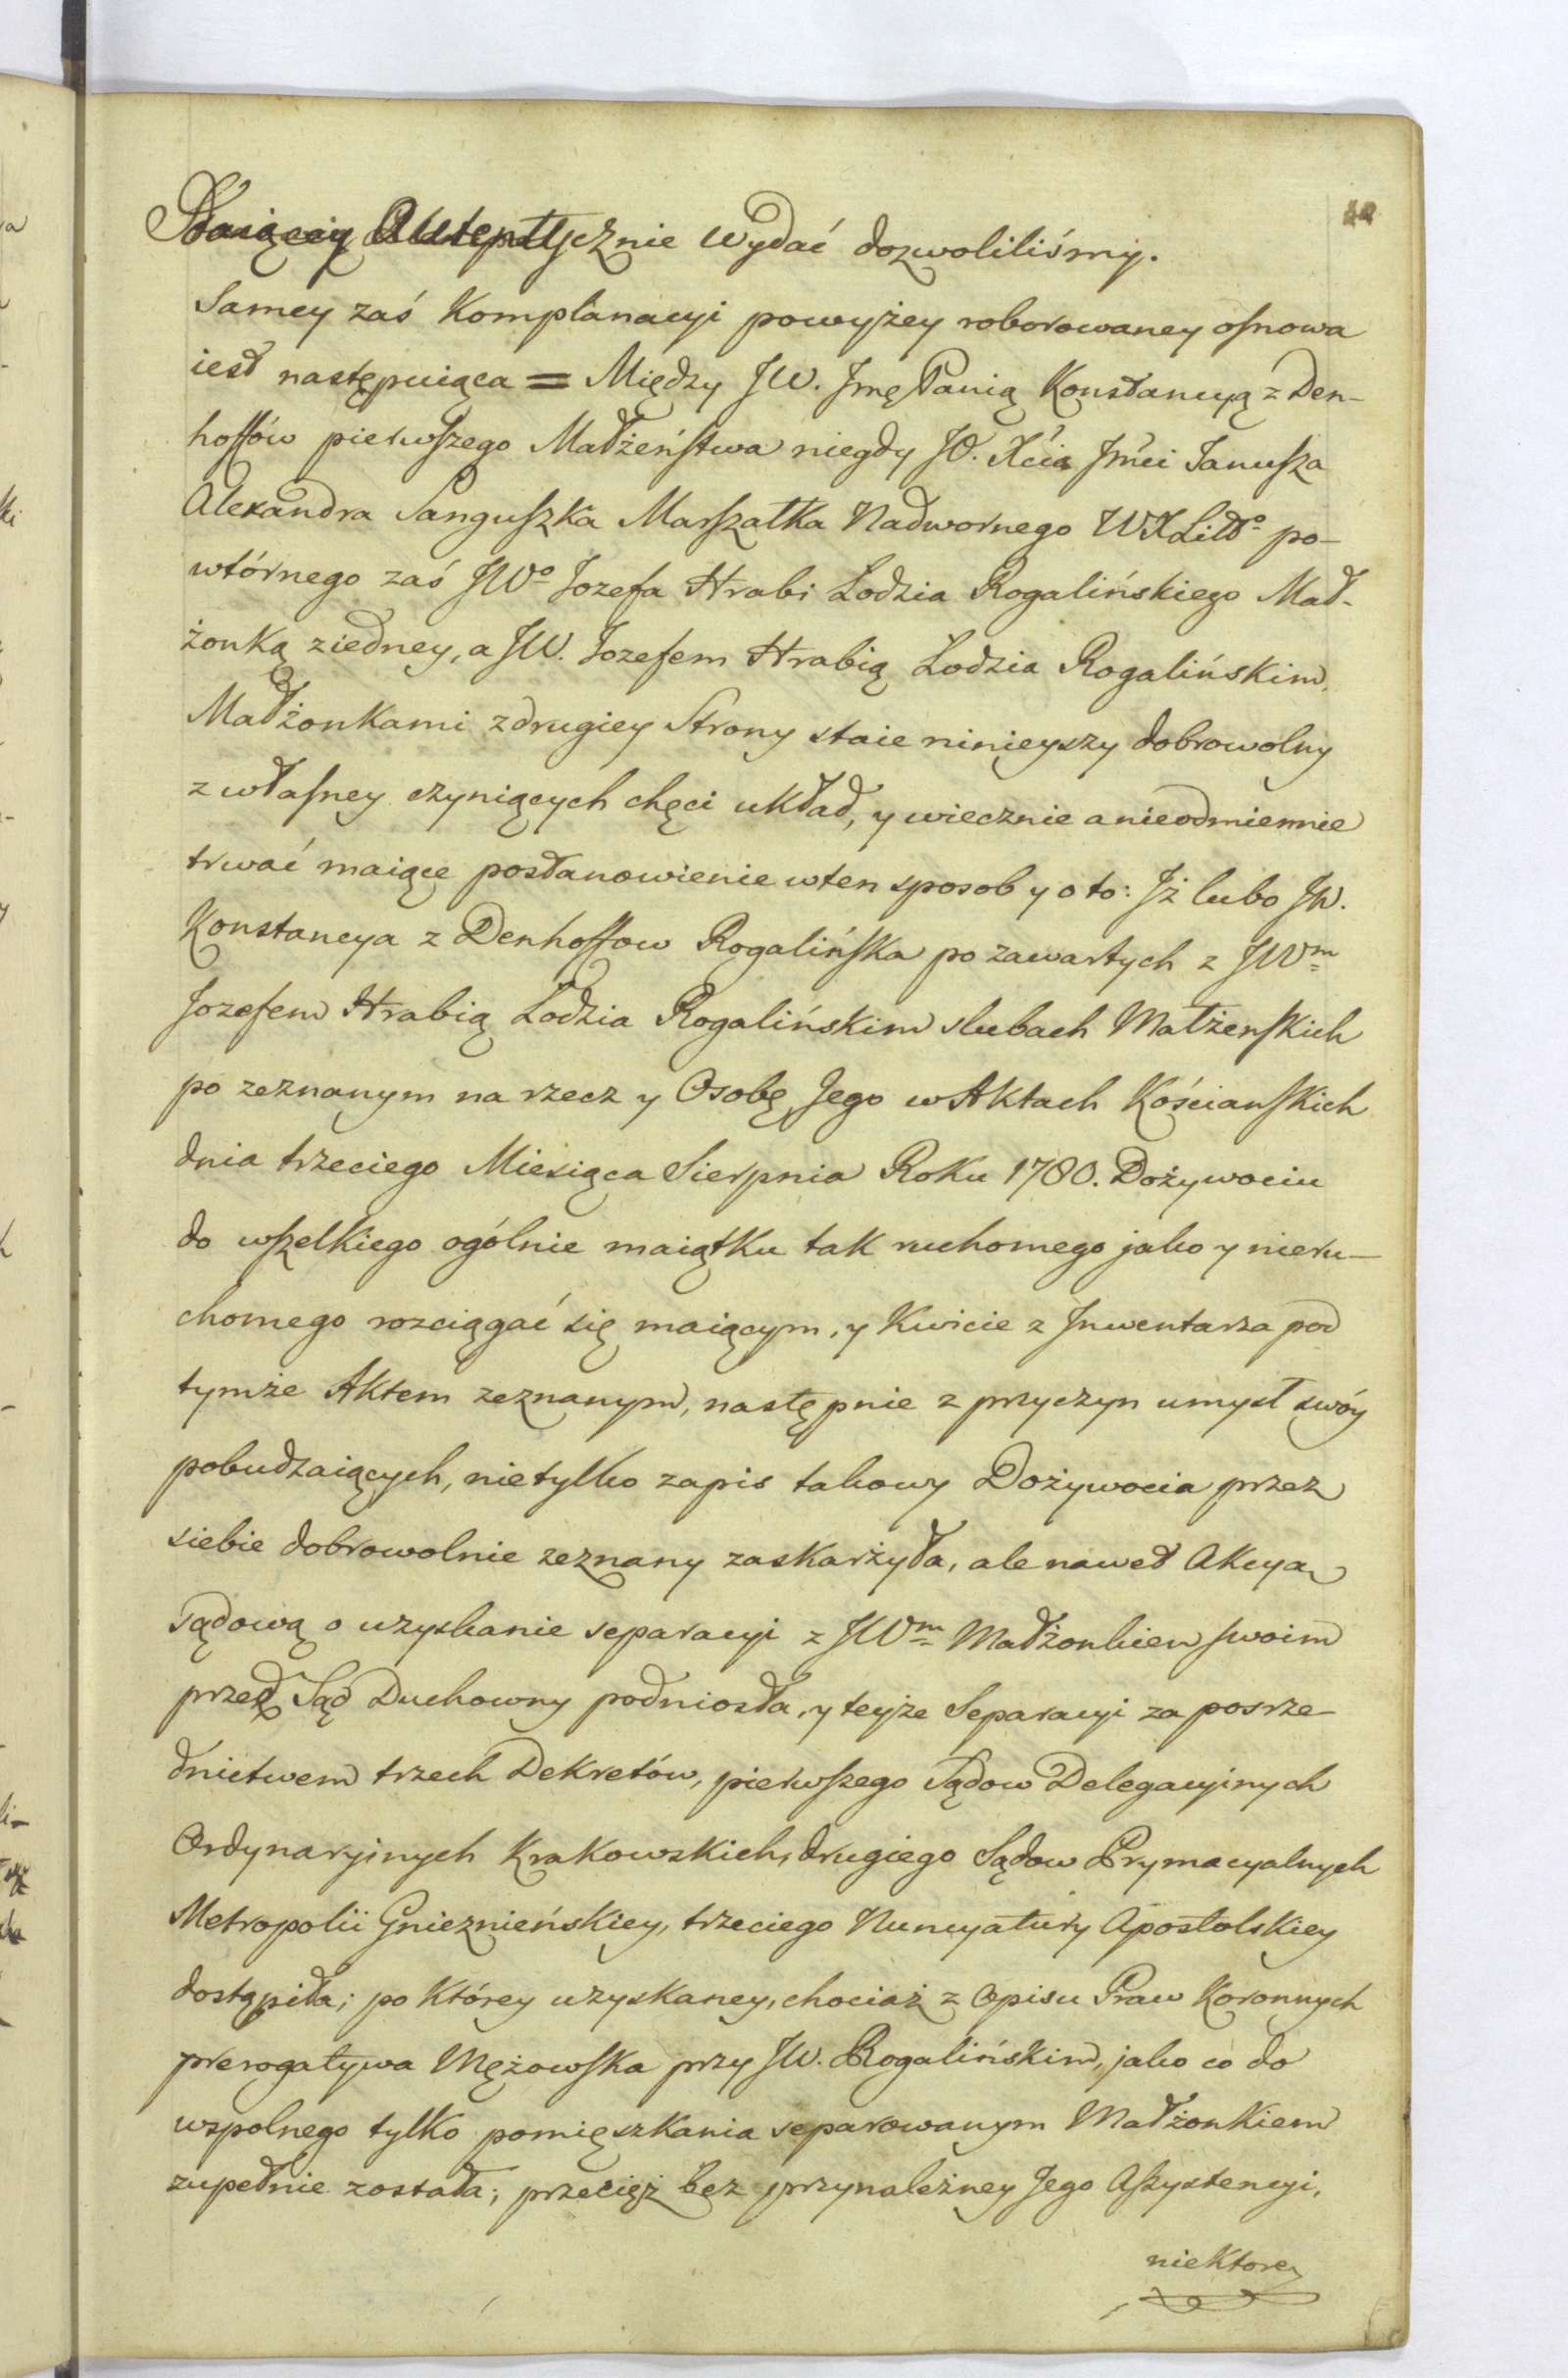 Staiącey Autentycznie wydać dozwoliliśmy.
Samey zaś Komplanacyi powyżey roborowaney osnowa
iest następuiąca = Między JW. Jmę Panią Konstancyą z Den-
hoffów pierwszego Małżeństwa niegdy JO. Xcia Jmci Janusza
Alexandra Sanguszka Marszałka Nadwornego WXLitto po-
wtórnego zaś JWo Jozefa Hrabi Lodzia Rogalińskiego Mał-
żonką ziedney, a JW. Jozefem Hrabią Lodzia Rogalińskim,
Małżonkami z drugiey Strony staie ninieyszy dobrowolny
z własney czyniących chęci układ, y wiecznie a nieodmiennie
trwać maiące postanowienie w ten sposob y o to: Iż lubo JW.
Konstancya z Denhoffow Rogalińska po zawartych z JWm
Jozefem Hrabią Lodzia Rogalińskim slubach Małżenskich
po zeznanym na rzecz y Osobę Jego w Aktach Kościanskich
dnia trzeciego Miesiąca Sierpnia Roku 1780. Dożywociu
do wszelkiego ogólnie maiątku tak ruchomego jako y nieru-
chomego rozciągać się maiącym, y Kwicie z Inwentarza pod
tymże Aktem zeznanym, następnie z przyczyn umysł swóy
pobudzaiących, nietylko zapis takowy Dożywocia przez
siebie dobrowolnie zeznany zaskarżyła, ale nawet Akcya
sądową o uzyskanie separacyi z JWm Małżonkiem swoim
przed Sąd Duchowny podniosła, y teyże Separacyi za posrze-
dnictwem trzech Dekretów, pierwszego Sądow Delegacyinych
Ordynaryinych Krakowskich, drugiego Sądow Prymacyalnych
Metropolii Gnieznieńskiey, trzeciego Nuncyatury Apostolskiey
dostąpiła; po którey uzyskaney, chociaż z Opisu Praw Koronnych
prerogatywa Mężowska przy JW. Rogalińskim, jako co do
wspolnego tylko pomięszkania separowanym Małżonkiem
zupełnie została; przecięż bez przynależney Jego Assystencyi,
niektore